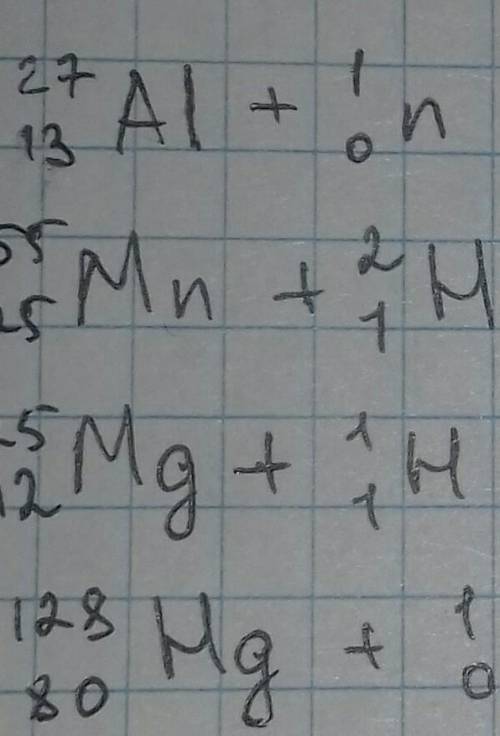 27 13 Al + 1 0 n
55 25 Mn + 2 1 H
5 12 Mg + 1 1 H
128 80 Hg + 1 0